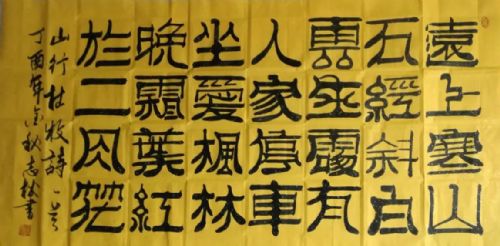 遠上寒山
石經斜白
雲生處有
人家停車
坐愛楓林
晚霜葉紅
於二月花
山行杜牧詩一首
丁酉年金秋志林書